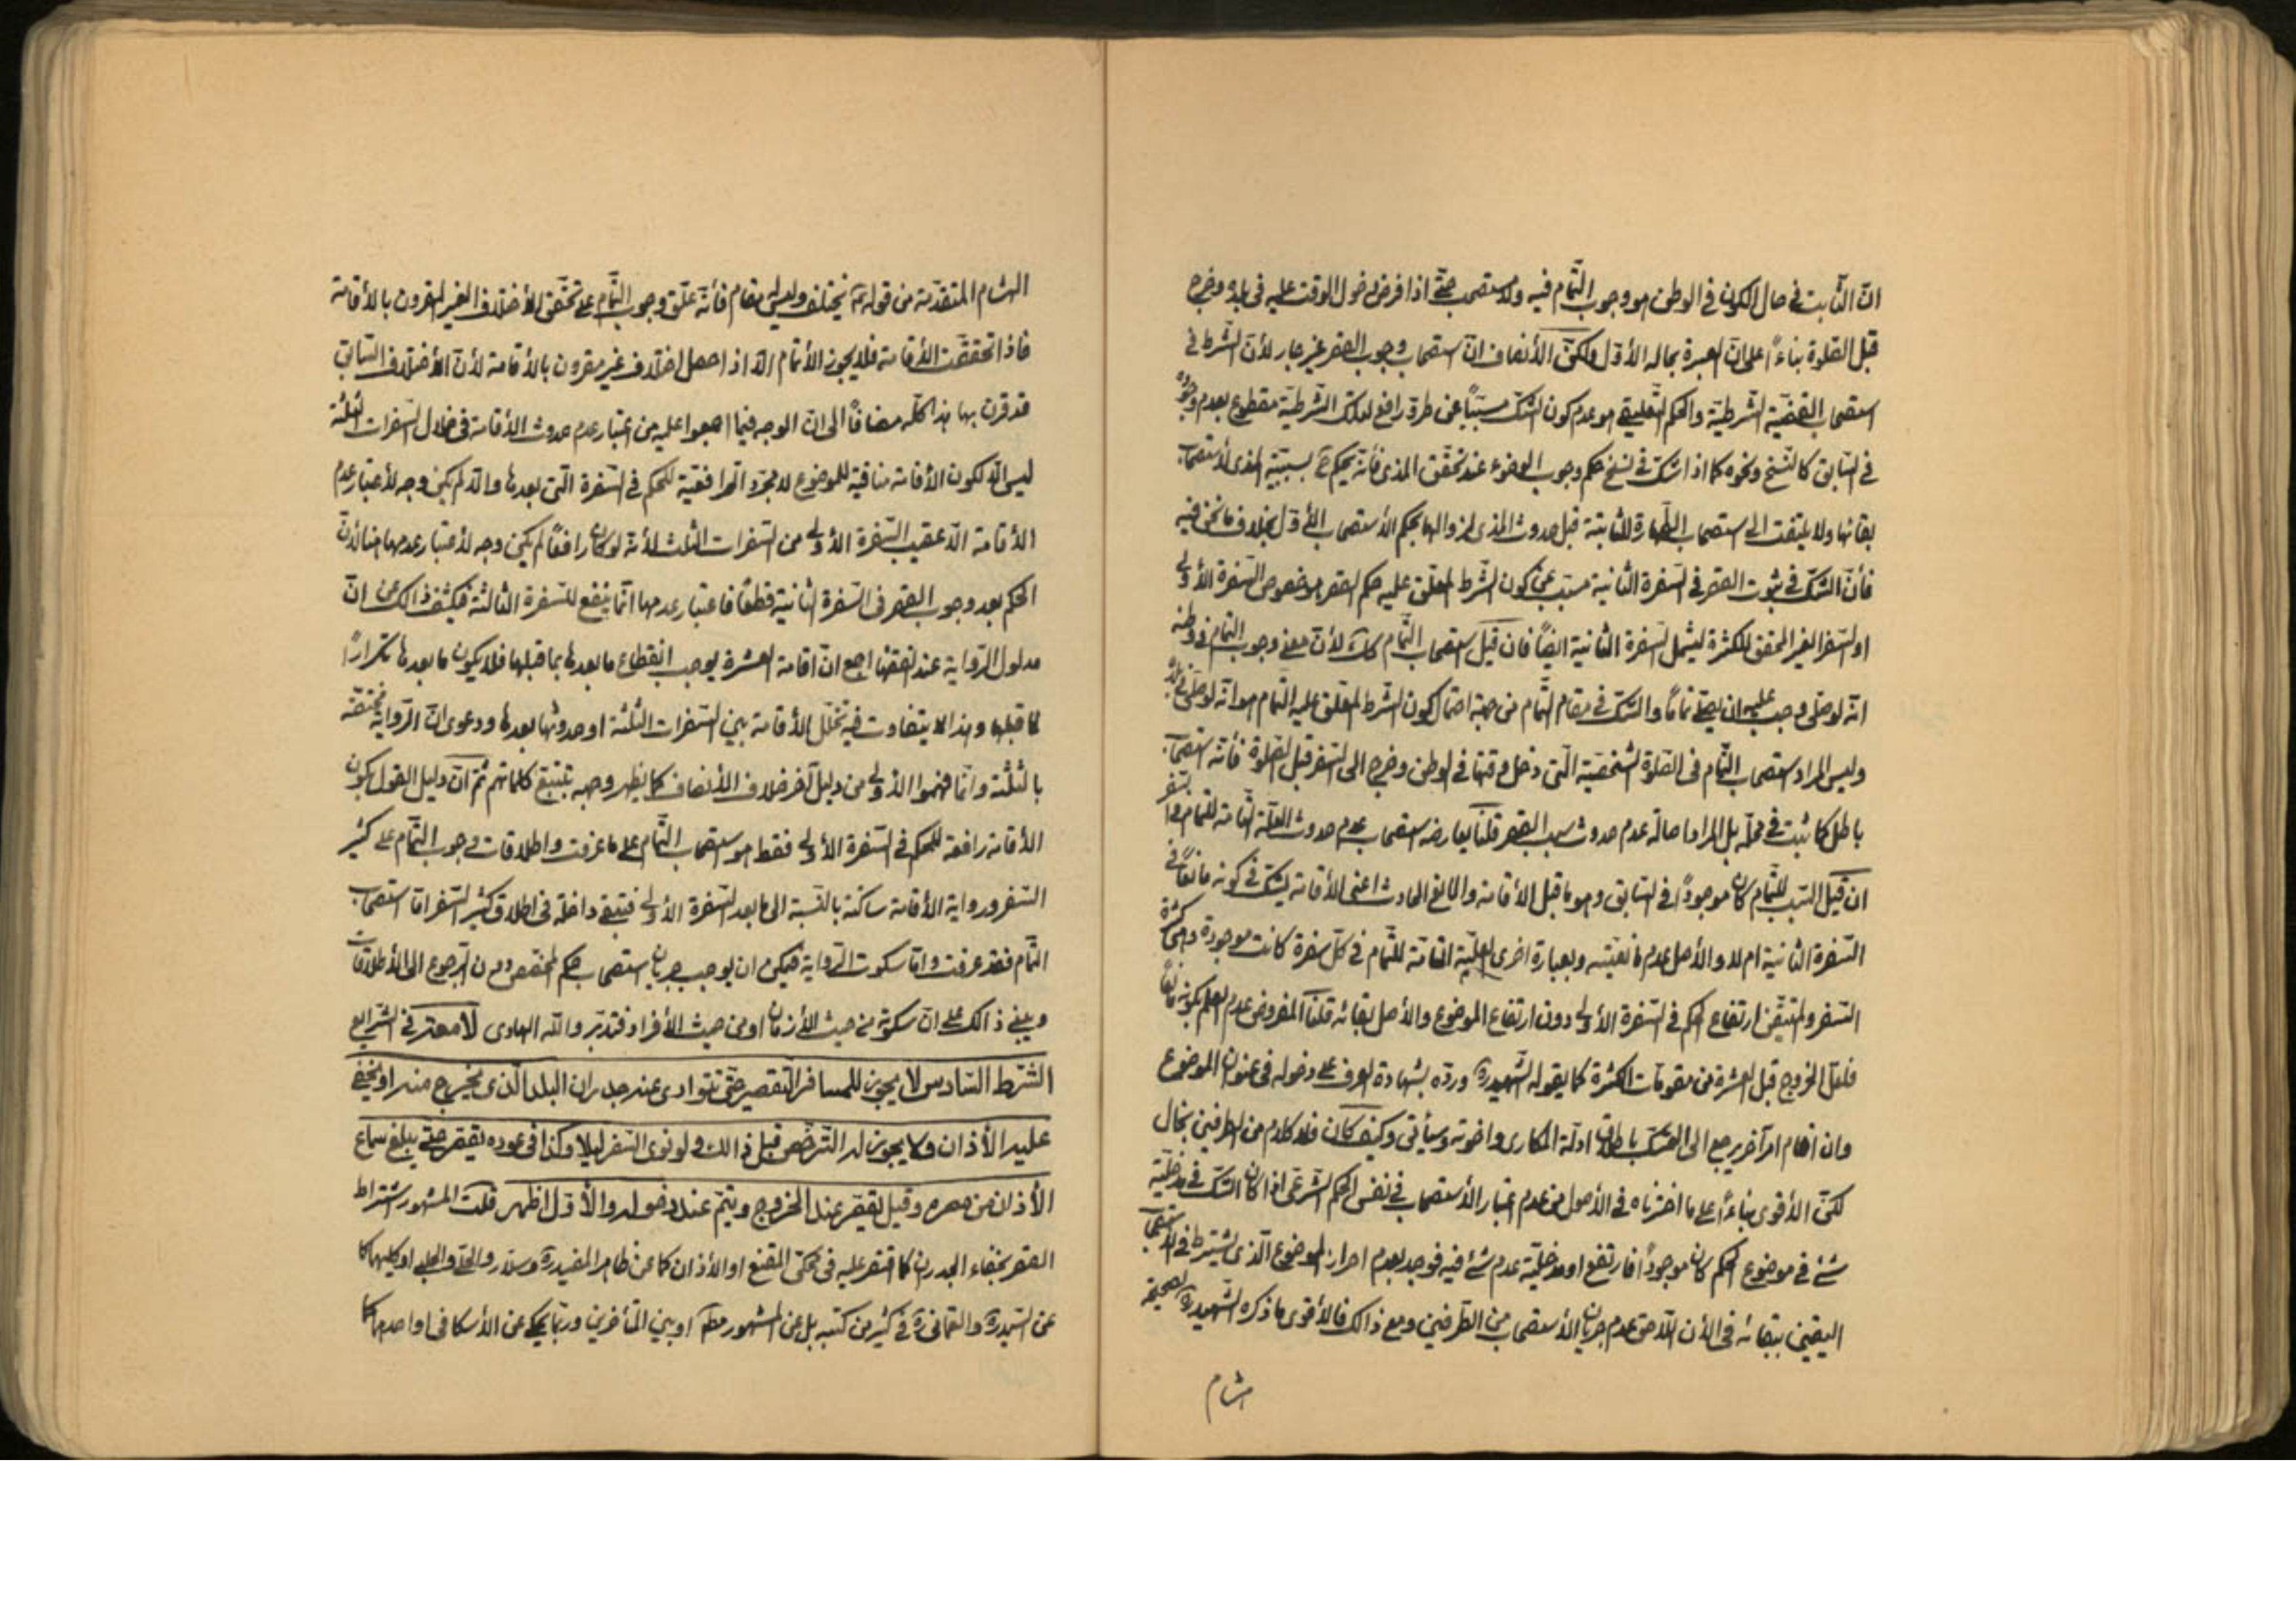 انّ الثّابت فى حال الكون فى الوطن هو وجوب التّمام فيه ولا يستصحب حتّى اذا فرض دخول الوقت عليه فى بلده وخرج
قبل الصّلوة بناءً على انّ العبرة بحاله الأوّل ولكنّ الأنصاف انّ استصحاب وجوب القصر غير جار لأنّ الشّرط فى
استصحاب القضيّة الشّرطيّة والحكم التّعليقى هو عدم كون الشّك مسبّباً عن طروّ رافع لتلك الشّرطيّة مقطوع بعدم وجوده
فى السّابق كالنّسخ ونحوه كما اذا شكّ فى نسخ حكم وجوب الوضوء عند تحقّق المذى فأنّه يحكم بسببيّة المذى لأستصحاب
بقائها ولا يلتفت الى استصحاب الطّهارة الثّابتة قبل حدوث المذى لزوالها بحكم الأستصحاب الأوّل بخلاف ما نحن فيه
فأنّ الشّكّ فى ثبوت القصر فى السّفرة الثّانية مسبّب عن كون الشّرط المعلّق عليه حكم القصر هو خصوص السّفرة الأولى
او السّفر الغير المحقّق للكثرة ليشمل السّفرة الثّانية ايضاً فان قيل استصحاب التّمام كك لأنّ معنى وجوب التّمام فى وطنه
انّه لو صلّى وجب عليه ان يصلّى تماماً والشّكّ فى مقام التّمام من جهة احتمال كون الشّرط المعلّق عليه التّمام هو انّه لو صلّى فى بلده
وليس المراد استصحاب التّمام فى الصّلوة الشّخصيّة الّتى دخل وقتها فى الوطن وخرج الى السّفر قبل الصّلوة فأنّه استصحاب
باطل كما ثبت فى محلّه بل المراد اصالة عدم حدوث سبب القصر قلنا يعارضه استصحاب عدم حدوث العلّة التّامة للتّمام فى السّفر
ان قيل السّبب للتّمام كان موجوداً فى السّابق وهو ما قبل الأقامة والمانع الحادث اعنى الأقامة يشكّ فى كونه مانعاً فى
السّفرة الثّانية ام لا والأصل عدم مانعيّته وبعبارة اخرى العلّيّة التّامّة للتّمام فى كلّ سفرة كانت موجودة وهى كثرة
السّفر والمتيقّن ارتفاع الحكم فى السّفرة الأولى دون ارتفاع الموضوع والأصل بقائه قلنا المفروض عدم العلم بكونه مانعاً
فلعلّ الخروج قبل العشرة من مقوّمات الكثرة كما يقوله الشّهيد ره وردّه بشهادة العرف على دخوله فى عنوان الموضوع
وان اقام امر آخر يرجع الى التمسّك باطلاق ادلّة المكارى واخوته وسيأتى وكيف كان فلا كلام من الطرفين بحال
لكنّ الأقوى بناءً على ما اخترناه فى الأصول من عدم اعتبار الأستصحاب فى نفس الحكم الشّرعى اذا كان الشّكّ فى مدخليّة
شئ فى موضوع الحكم كان موجوداً فارتفع او مدخليّة عدم شئ فيه فوجد بعدم احراز الموضوع الّذى يشترط فى الأستصحاب
اليقين ببقائه فى الأن اللّاحق عدم جريان الأستصحاب من الطّرفين ومع ذالك فالأقوى ما ذكره الشّهيد ره لصحيحة
هشام
الهشام المتقدّمة من قوله ع يختلف وليس له مقام فأنّه علّق وجوب التّمام على تحقّق الأختلاف الغير المقرون بالأقامة
فاذا تحققّت الأقامة فلا يجوز الأتمام الّا اذا حصل اختلاف غير مقرون بالأقامة لأنّ الأختلاف السّابق
قد قرن بها هذا كلّه مضافاً الى انّ الوجه فيما اجمعوا عليه من اعتبار عدم حدوث الأقامة فى خلال السّفرات الثلثة
ليس الّا لكون الأقامة منافية للموضوع لا مجرّد الرّافعيّة للحكم فى السّفرة الّتى بعدها والّا لم يكن وجه لأعتبار عدم
الأقامة الّا عقيب السّفرة الأولى من السّفرات الثلث لأنّه لو كان رافعاً لم يكن وجه لأعتبار عدمها ضائذاً
الحكم بعد وجوب القصر فى السّفرة الثّانية قطعاً فاعتبار عدمها انّما ينفع للسّفرة الثّالثة فيكشف ذالك عن انّ
مدلول الرّواية عند اجمع انّ اقامة العشرة يوجب انقطاع ما بعدها بما قبلها فلا يكون ما بعدها تكراراً
لما قبلها وهذا لا يتفاوت فيه تخلّل الأقامة بين السّفرات الثّلثة او حدوثها بعدها ودعوى انّ الرّواية مختصّة
بالثلثة وانّما فهموا الأولى من دليل آخر خلاف الأنصاف كما يظهر وجهه بتتبّع كلماتهم ثمّ انّ دليل القول بكون
الأقامة رافعة للحكم فى السّفرة الأولى فقط هو استصحاب التّمام على ما عرفت واطلاقات وجوب التّمام على كثير
السّفر ورواية الأقامة ساكتة بالنّسبة الى ما بعد السّفرة الأولى فتبقى داخلة فى اطلاق كثير السّفر امّا استصحاب
التّمام فقد عرفت وامّا سكوت الرّواية فيمكن ان يوجب جريان استصحاب حكم المخصّص دون الرّجوع الى الأطلاقات
ويبنى ذالك على انّ سكوته من حيث الأزمان او من حيث الأفراد فتدبّر والله الهادى لا معتبر فى الشّرايع
الشّرط السّادس لا يجوز للمسافر التّقصير حتّى تتوارى عنه جدران البلد الّذى يخرج منه او يخفى
عليه الأذان ولا يجوز له التّرخّص قبل ذالك ولو نوى السّفر ليلا وكذا فى عوده يقصّر حتّى يبلغ سماع
الأذان من مصره وقيل يقصّر عند الخروج ويتمّ عند دخوله والأوّل اظهر قلت المشهور اشتراط
القصر بخفاء الجدران كما اقتصر عليه فى محكىّ المقنع او الأذان كما عن ظاهر المفيد ره وسلّار والحلّى والحلبى او كليهما كما
عن السّيد ره والعمّانى ره فى كثير من كتبه بل عن المشهور مطلقا او بين المتأخرين وربّما يحكى عن الأسكافى او احدهما كما